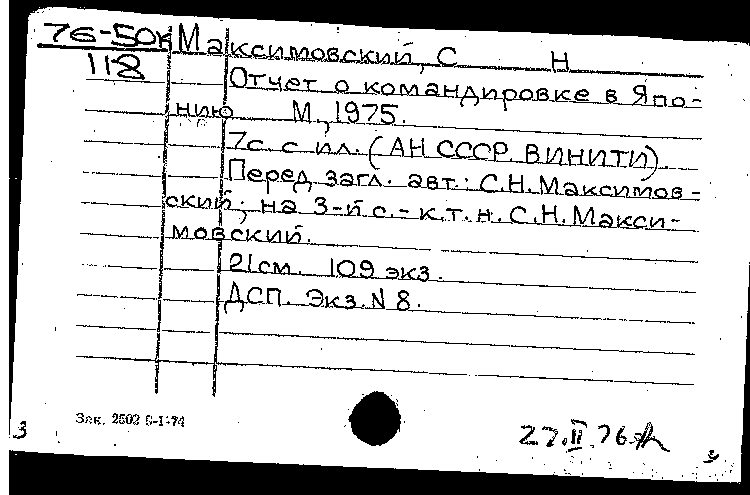 76-50к Максимовский, С Н
118
Отчет о командировке в Япо-
нию М., 1975.
7с. с ил. (АН СССР. ВИНИТИ).
Перед загл. авт.: С.Н. Максимов-
ский; на 3-й с. - к.т.н. С.Н. Макси-
мовский.
21см. 109 экз.
ДСП. Экз. N 8.
Зак. 2502 5-I-74
27.II.76
3